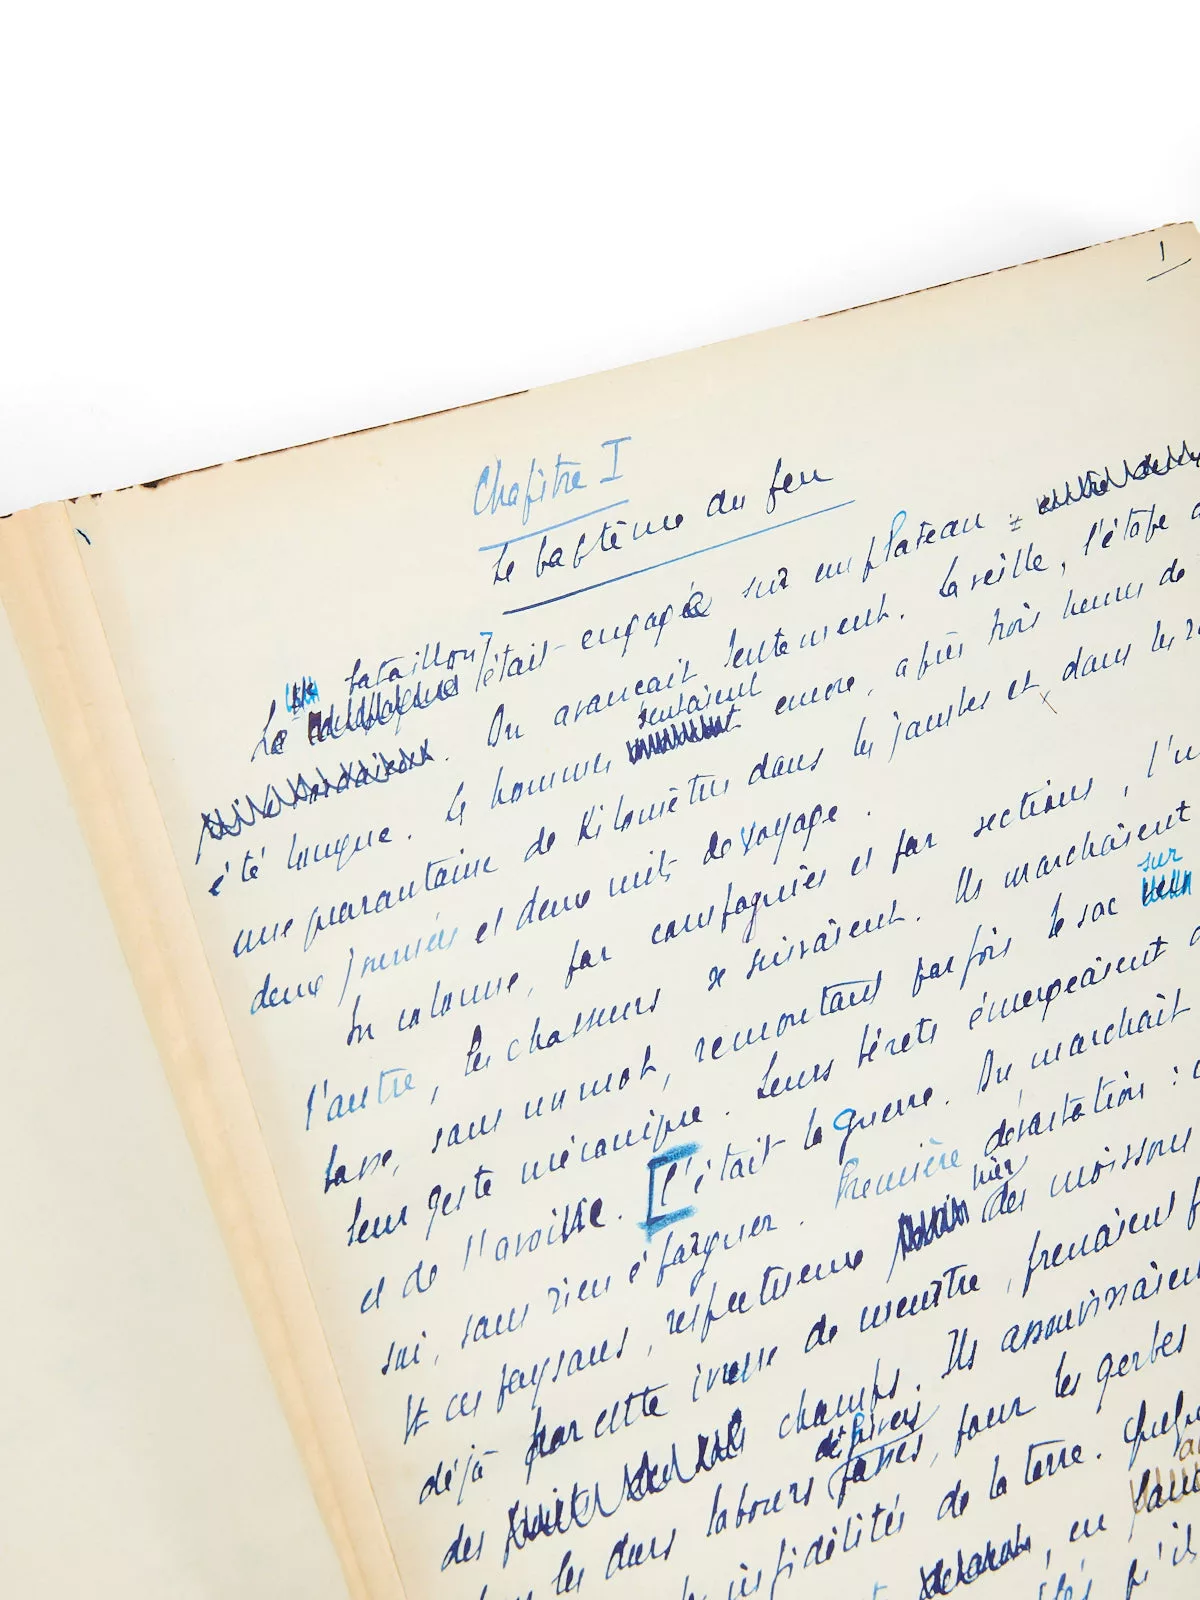 1
Chapitre I
Le baptême du feu
Le bataillon s'était engagé sur un plateau :
On avançait lentement. La veille, l'étape
été longue. Les hommes sentaient encore, après trois heures de
une quarantaine de kilomètres dans les jambes et, dans les
deux journées et deux nuits de voyage.
En colonne, par compagnies et par sections, l'un
l'autre, les chasseurs se suivaient. Ils marchaient
sans un mot, remontant parfois le sac sur
leur geste mécanique. Leurs bérets émergeaient
et de l'avoine. [C'était la guerre. On marchait
soi, sans rien épargner. Première dévastation :
Et ces paysans, respectueux hier des moissons
déjà par cette ivresse de meurtre, prenaient
des champs. Ils assouvissaient
les durs labours passés, pour les gerbes
infidélités de la terre.
, en